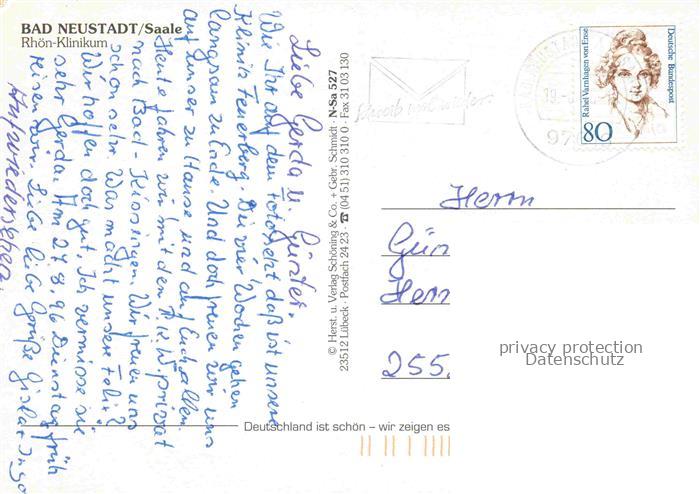 BAD NEUSTADT/Saale
Rhön-Klinikum
Liebe Gerda u. Günter.
Wie Ihr auf dem Foto seht daß ist unsere
Klinik Feuerberg. Die vier Wochen gehen
langsam zu Ende. Und doch freuen wir uns
auf unser zu Hause und auf Euch allen.
Heute fahren wir mit dem P.K.W. privat
nach Bad-Kissingen. Wir freuen uns
schon sehr. Was macht unsere
Wir hoffen doch gut. Ich vermisse sie
sehr Gerda. Am 27.8.96 Dienstag früh
reisen wir. Liebe liebe Grüße Gisela + Ingo
Auf Wiedersehen.
© Herst. u. Verlag Schöning & Co. + Gebr. Schmidt · N-Sa 527
23512 Lübeck · Postfach 24 23 · ☎ (04 51) 310 310 0 · Fax 31 03 130
Schreib mal wieder
Rahel Varnhagen von Ense
Deutsche Bundespost
80
Herrn
Gün
Herr
255.
privacy protection
Datenschutz
Deutschland ist schön – wir zeigen es